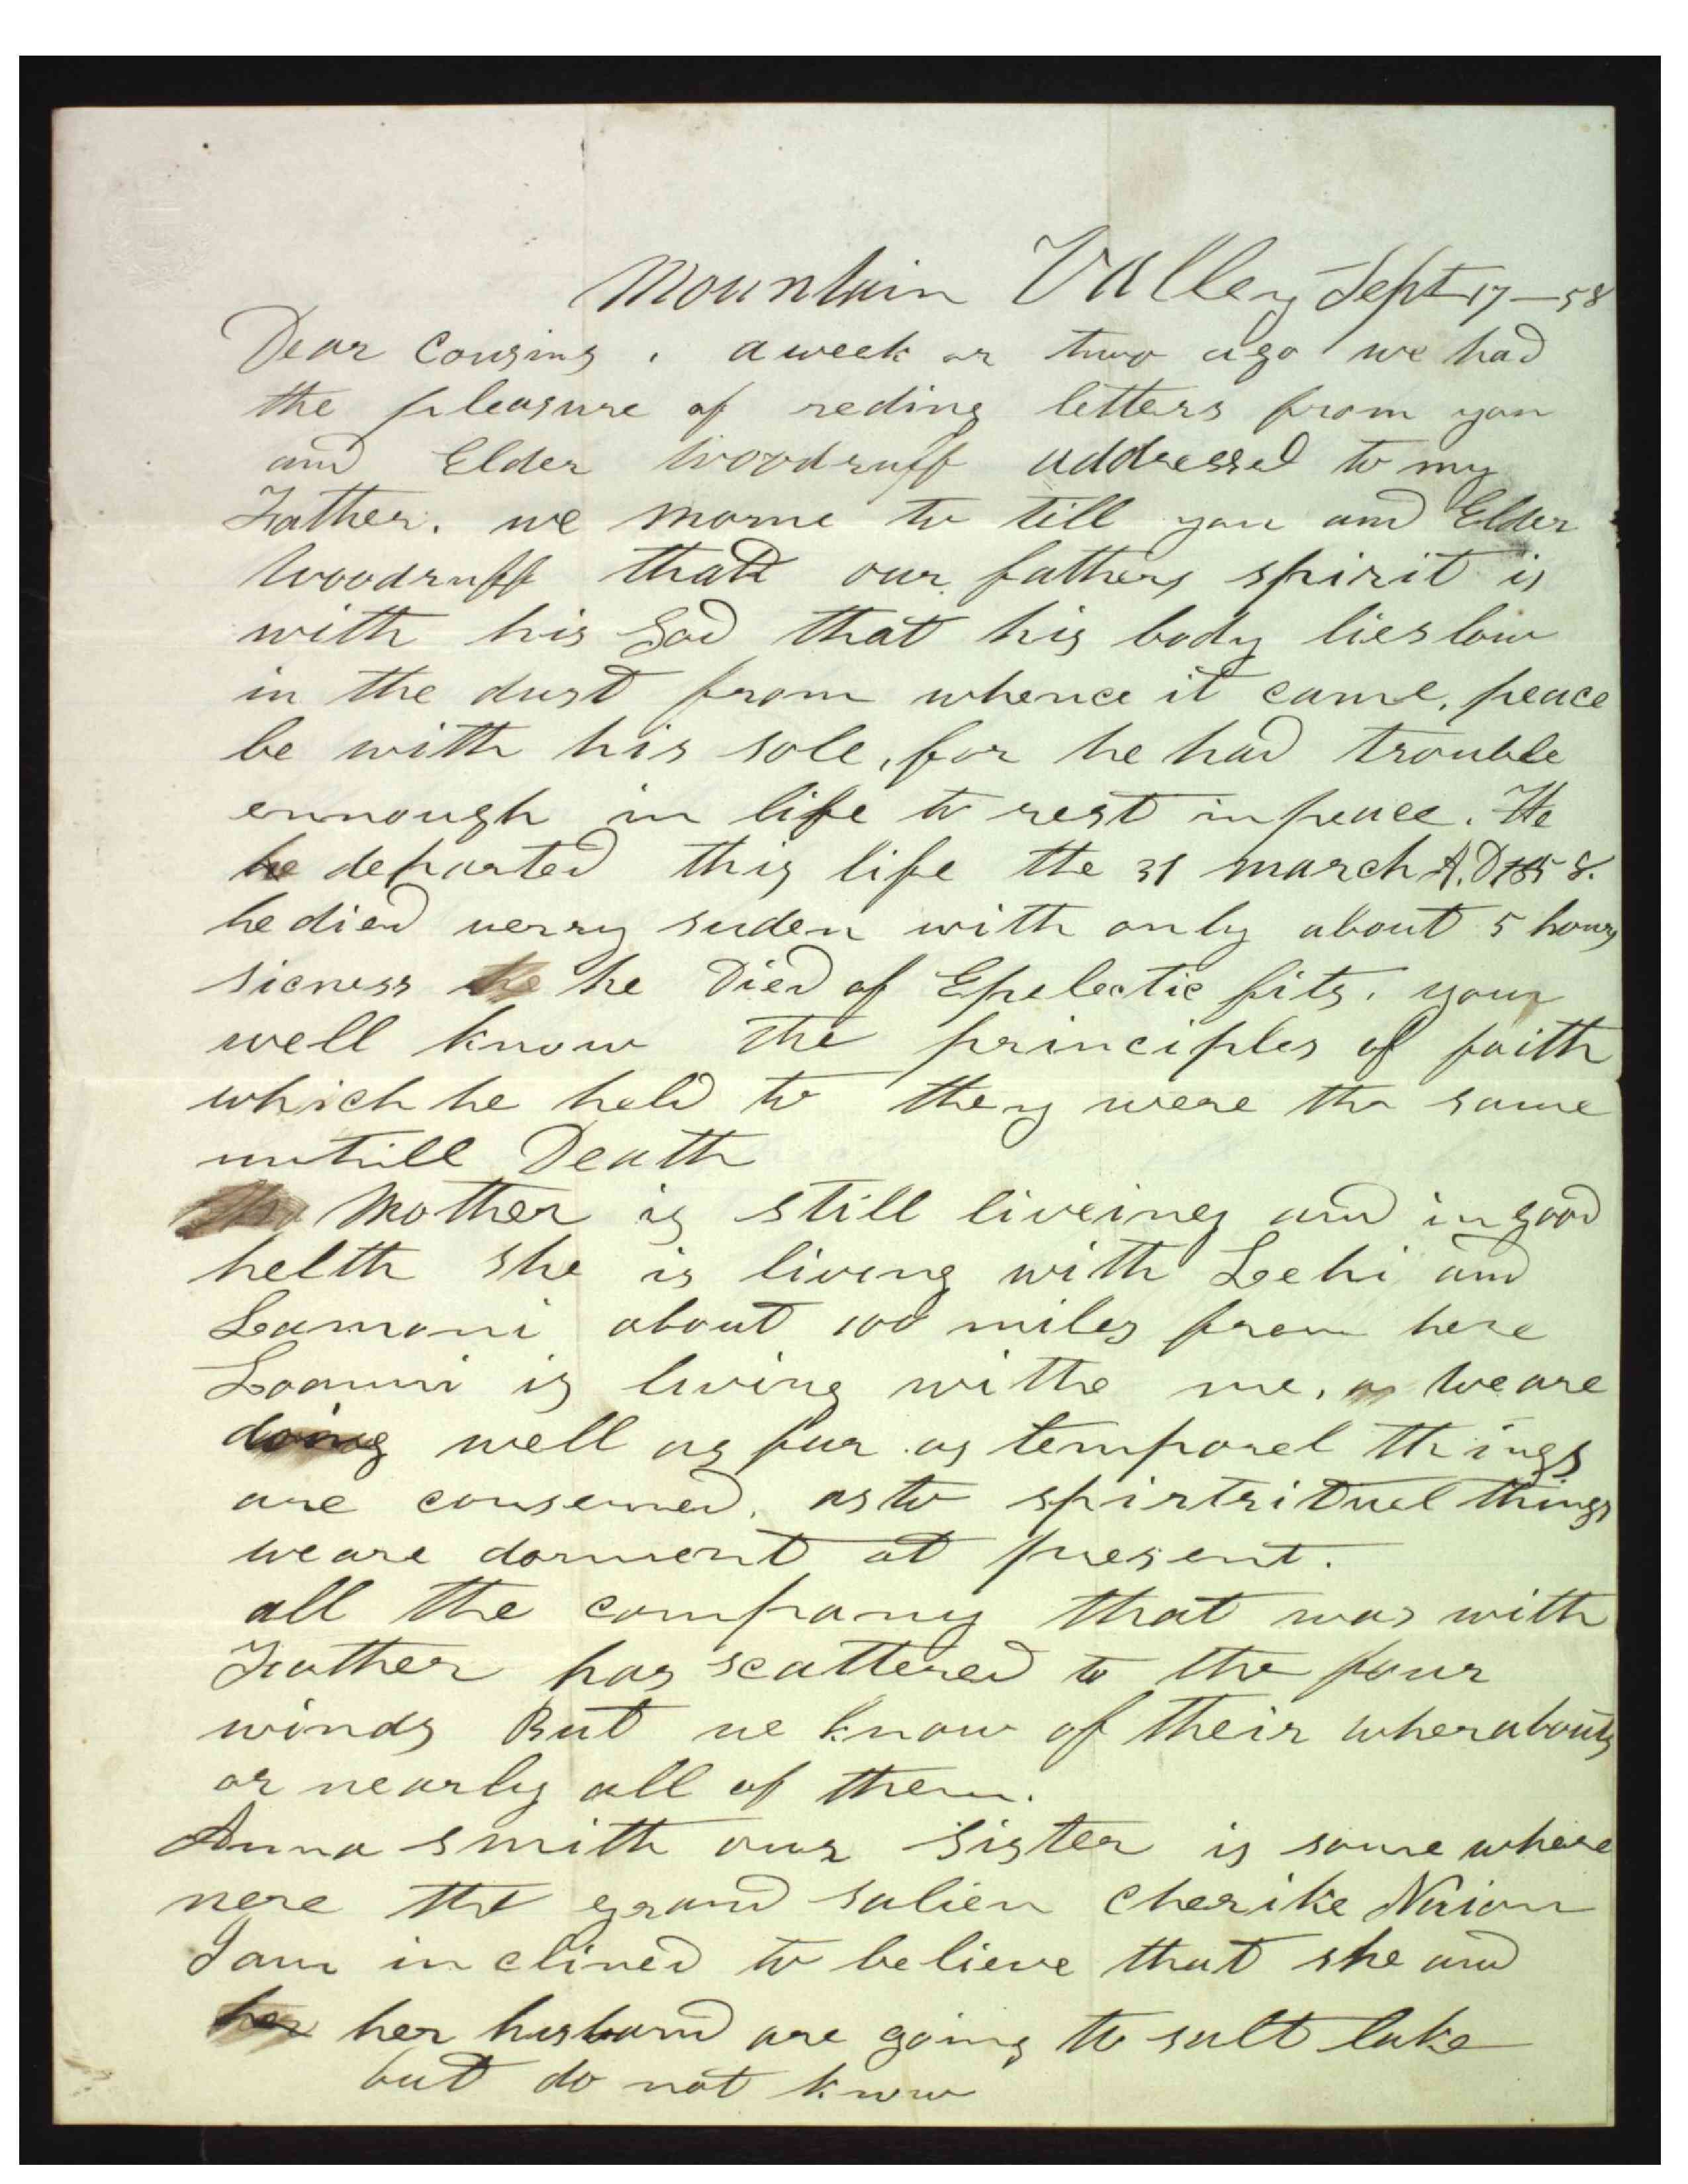 Mountain Valley Sept 17—58
Dear Cousins. a week or two ago we had
the pleasure of reding letters from you
and Elder Woodruff addressed to my
Father. we morne to till you and Elder
Woodruff that our fathers spirit is
with his God that his body lies low
in the dust from whence it came, peace
be with his sole, for he had trouble
ennough in life to rest in peace. He
he departed this life the 31 march A.D 1858.
he died verry suden with only about 5 hours
sicness he Died of Epelectic fits. your
well know the principles of faith
which he held to they were the same
untill Death
Mother is still liveing and in good
helth she is living with Lehi and
Lamoni about 100 miles from here
Loammi is living withe me. we are
doing well as far as temporel things
are conserned. as to spirtrituel things
we are dorment at present.
all the company that was with
Father has scattered to the four
winds But we know of their wherabouts
or nearly all of them.
Anna Smith our Sister is some where
nere the grand salien Cherike Naion
I am inclined to believe that she and
her her husband are going to salt lake
but do not know